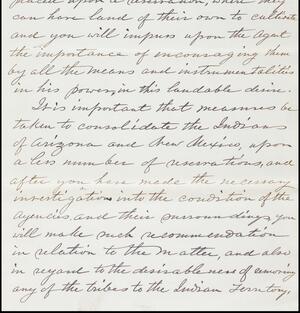 placed upon a reservation, where they
can have land of their own to cultivate
and you will impress upon the Agent
the importance of encouraging them
by all the means and instrumentalities
in his power, in this laudable desire.
It is important that measures be
taken to consolidate the Indians
of Arizona and New Mexico, upon
a less number of reservations, and
after you have made the necessary
investigation into the condition of the
Agencies, and their surroundings, you
will make such recommendation
in relation to the matter, and also
in regard to the desirableness of removing
any of the tribes to the Indian Territory,